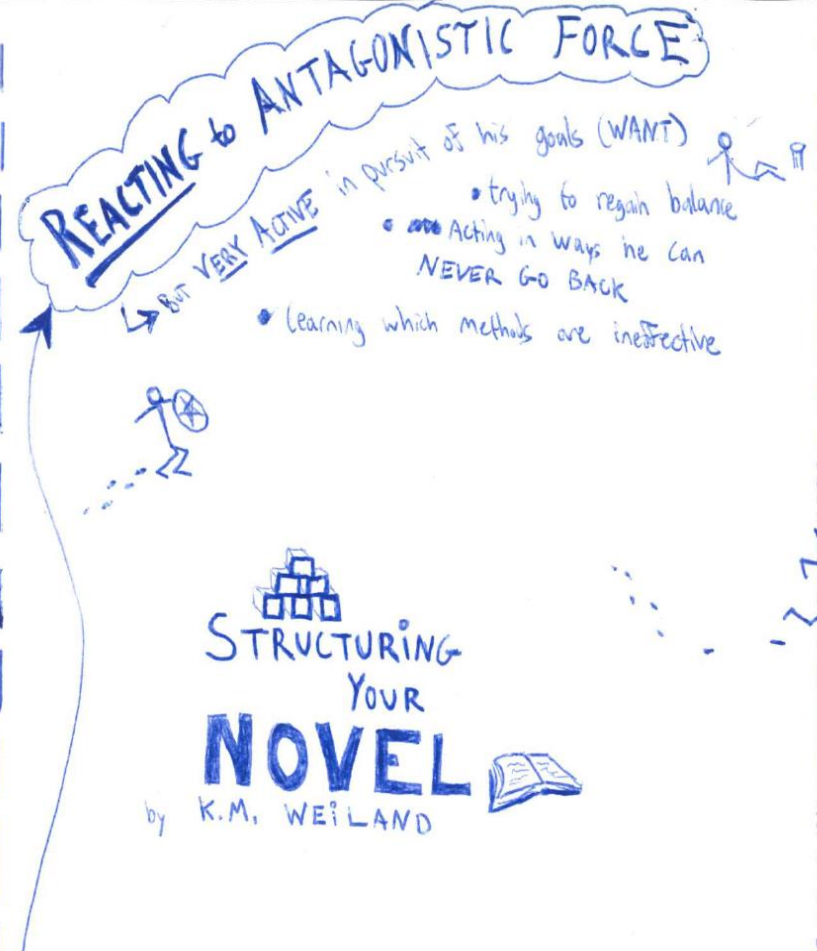 REACTING to ANTAGONISTIC FORCE
↳ BUT VERY ACTIVE in pursuit of his goals (WANT)
• trying to regain balance
• Acting in ways he can
NEVER GO BACK
• Learning which methods are ineffective
STRUCTURING
YOUR
NOVEL
by K.M. WEILAND